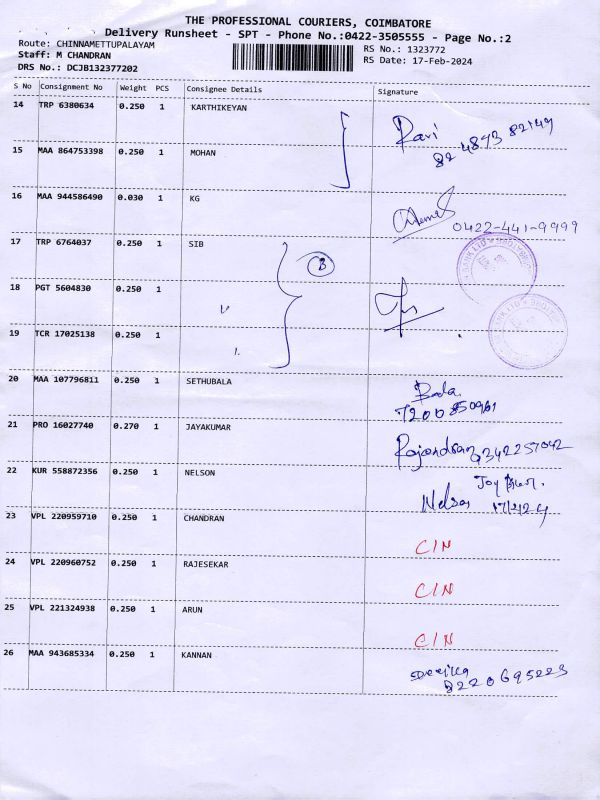 THE PROFESSIONAL COURIERS, COIMBATORE
Delivery Runsheet - SPT - Phone No.:0422-3505555 - Page No.:2
Route: CHINNAMETTUPALAYAM RS No.: 1323772
Staff: M CHANDRAN RS Date: 17-Feb-2024
DRS No.: DCJB132377202
S No Consignment No Weight PCS Consignee Details Signature
14 TRP 6380634 0.250 1 KARTHIKEYAN
Ravi
15 MAA 864753398 0.250 1 MOHAN
16 MAA 944586490 0.030 1 KG
0422-441-9999
17 TRP 6764037 0.250 1 SIB
3
18 PGT 5604830 0.250 1
19 TCR 17025138 0.250 1
20 MAA 107796811 0.250 1 SETHUBALA
21 PRO 16027740 0.270 1 JAYAKUMAR
Rajendran
22 KUR 558872356 0.250 1 NELSON
Nelson
23 VPL 220959710 0.250 1 CHANDRAN
C/N
24 VPL 220960752 0.250 1 RAJESEKAR
C/N
25 VPL 221324938 0.250 1 ARUN
C/N
26 MAA 943685334 0.250 1 KANNAN
8220695223